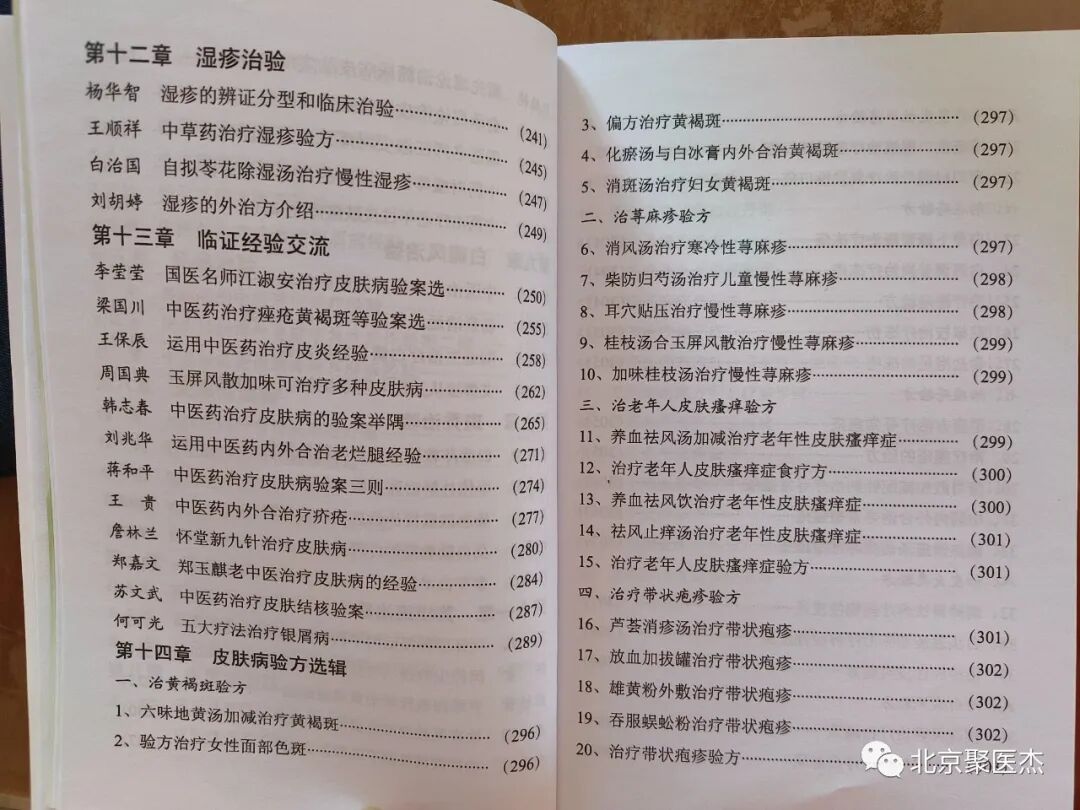 第十二章 湿疹治验
杨华智 湿疹的辨证分型和临床治验 (241)
王顺祥 中草药治疗湿疹验方 (245)
白治国 自拟苓花除湿汤治疗慢性湿疹 (247)
刘胡婷 湿疹的外治方介绍 (249)
第十三章 临证经验交流
李莹莹 国医名师江淑安治疗皮肤病验案选 (250)
梁国川 中医药治疗痤疮黄褐斑等验案选 (255)
王保辰 运用中医药治疗皮炎经验 (258)
周国典 玉屏风散加味可治疗多种皮肤病 (262)
韩志春 中医药治疗皮肤病的验案举隅 (265)
刘兆华 运用中医药内外合治老烂腿经验 (271)
蒋和平 中医药治疗皮肤病验案三则 (274)
王 贵 中医药内外合治疗疥疮 (277)
詹林兰 怀堂新九针治疗皮肤病 (280)
郑嘉文 郑玉麒老中医治疗皮肤病的经验 (284)
苏文武 中医药治疗皮肤结核验案 (287)
何可光 五大疗法治疗银屑病 (289)
第十四章 皮肤病验方选辑
一、治黄褐斑验方
1、六味地黄汤加减治疗黄褐斑 (296)
2、验方治疗女性面部色斑 (296)
3、偏方治疗黄褐斑 (297)
4、化瘀汤与白冰膏内外合治黄褐斑 (297)
5、消斑汤治疗妇女黄褐斑 (297)
二、治荨麻疹验方
6、消风汤治疗寒冷性荨麻疹 (297)
7、柴防归芍汤治疗儿童慢性荨麻疹 (298)
8、耳穴贴压治疗慢性荨麻疹 (298)
9、桂枝汤合玉屏风散治疗慢性荨麻疹 (299)
10、加味桂枝汤治疗慢性荨麻疹 (299)
三、治老年人皮肤瘙痒验方
11、养血祛风汤加减治疗老年性皮肤瘙痒症 (299)
12、治疗老年人皮肤瘙痒症食疗方 (300)
13、养血祛风饮治疗老年性皮肤瘙痒症 (300)
14、祛风止痒汤治疗老年性皮肤瘙痒症 (301)
15、治疗老年人皮肤瘙痒症验方 (301)
四、治疗带状疱疹验方
16、芦荟消疹汤治疗带状疱疹 (301)
17、放血加拔罐治疗带状疱疹 (302)
18、雄黄粉外敷治疗带状疱疹 (302)
19、吞服蜈蚣粉治疗带状疱疹 (302)
20、治疗带状疱疹验方
北京聚医杰